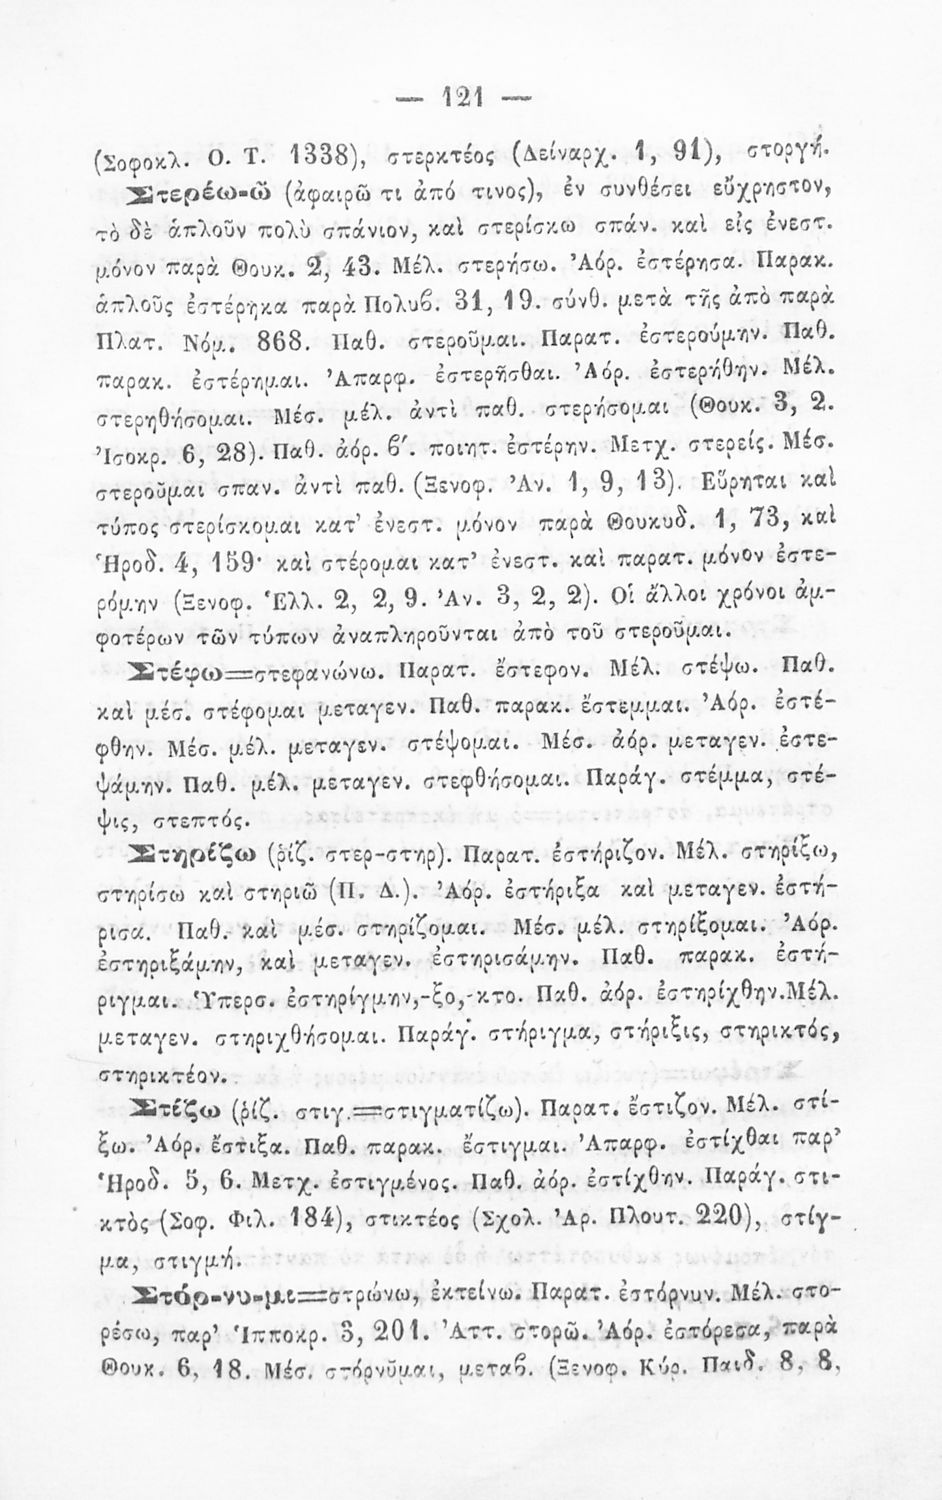 — 121 —
(Σοφοκλ. Ο. Τ. 1338), στερκτέος (Δείναρχ. 1, 91), στοργή.
Στερέω-ῶ (ἀφαιρῶ τι ἀπό τινος), ἐν συνθέσει εὔχρηστον,
τὸ δὲ ἁπλοῦν πολὺ σπάνιον, καὶ στερίσκω σπάν. καὶ εἰς ἐνεστ.
μόνον παρὰ Θουκ. 2, 43. Μέλ. στερήσω. Ἀόρ. ἐστέρησα. Παρακ.
ἁπλοῦς ἐστέρηκα παρὰ Πολυβ. 31, 19. σύνθ. μετὰ τῆς ἀπὸ παρὰ
Πλατ. Νόμ. 868. Παθ. στεροῦμαι. Παρατ. ἐστερούμην. Παθ.
παρακ. ἐστέρημαι. Ἀπαρφ. ἐστερῆσθαι. Ἀόρ. ἐστερήθην. Μέλ.
στερηθήσομαι. Μέσ. μέλ. ἀντὶ παθ. στερήσομαι (Θουκ. 3, 2.
Ἰσοκρ. 6, 28). Παθ. ἀόρ. β΄. ποιητ. ἐστέρην. Μετχ. στερείς. Μέσ.
στεροῦμαι σπαν. ἀντὶ παθ. (Ξενοφ. Ἀν. 1, 9, 13). Εὕρηται καὶ
τύπος στερίσκομαι κατ’ ἐνεστ. μόνον παρὰ Θουκυδ. 1, 73, καὶ
Ἡροδ. 4, 159· καὶ στέρομαι κατ’ ἐνεστ. καὶ παρατ. μόνον ἐστε-
ρόμην (Ξενοφ. Ἑλλ. 2, 2, 9. Ἀν. 3, 2, 2). Οἱ ἄλλοι χρόνοι ἀμ-
φοτέρων τῶν τύπων ἀναπληροῦνται ἀπὸ τοῦ στεροῦμαι.
Στέφω=στεφανώνω. Παρατ. ἔστεφον. Μέλ. στέψω. Παθ.
καὶ μέσ. στέφομαι μεταγεν. Παθ. παρακ. ἔστεμμαι. Ἀόρ. ἐστέ-
φθην. Μέσ. μέλ. μεταγεν. στέψομαι. Μέσ. ἀόρ. μεταγεν. ἐστε-
ψάμην. Παθ. μέλ. μεταγεν. στεφθήσομαι. Παράγ. στέμμα, στέ-
ψις, στεπτός.
Στηρίζω (ῥίζ. στερ-στηρ). Παρατ. ἐστήριζον. Μέλ. στηρίξω,
στηρίσω καὶ στηριῶ (Π. Δ.). Ἀόρ. ἐστήριξα καὶ μεταγεν. ἐστή-
ρισα. Παθ. καὶ μέσ. στηρίζομαι. Μέσ. μέλ. στηρίξομαι. Ἀόρ.
ἐστηριξάμην, καὶ μεταγεν. ἐστηρισάμην. Παθ. παρακ. ἐστή-
ριγμαι. Ὑπερσ. ἐστηρίγμην,-ξο,-κτο. Παθ. ἀόρ. ἐστηρίχθην.Μέλ.
μεταγεν. στηριχθήσομαι. Παράγ. στήριγμα, στήριξις, στηρικτός,
στηρικτέον.
Στίζω (ῥίζ. στιγ.=στιγματίζω). Παρατ. ἔστιζον. Μέλ. στί-
ξω. Ἀόρ. ἔστιξα. Παθ. παρακ. ἔστιγμαι. Ἀπαρφ. ἐστίχθαι παρ’
Ἡροδ. 5, 6. Μετχ. ἐστιγμένος. Παθ. ἀόρ. ἐστίχθην. Παράγ. στι-
κτὸς (Σοφ. Φιλ. 184), στικτέος (Σχολ. Ἀρ. Πλουτ. 220), στίγ-
μα, στιγμή.
Στόρ-νυ-μι=στρώνω, ἐκτείνω. Παρατ. ἐστόρνυν. Μέλ. στο-
ρέσω, παρ’ Ἱπποκρ. 3, 201. Ἀττ. στορῶ. Ἀόρ. ἐστόρεσα, παρὰ
Θουκ. 6, 18. Μέσ. στόρνῦμαι, μεταβ. (Ξενοφ. Κύρ. Παιδ. 8, 8,